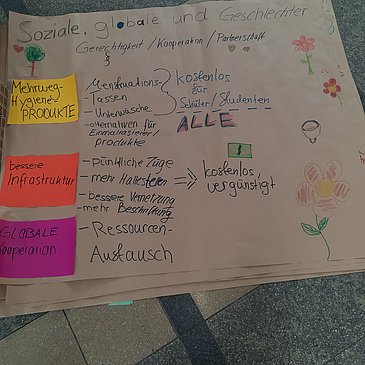 Soziale, globale und Geschlechter
Gerechtigkeit / Kooperation / Partnerschaft
Mehrweg-
Hygiene-
PRODUKTE
Menstruations-
Tassen
- Unterwäsche
- alternativen für
Einmalrasierer/
produkte
kostenlos
für
Schüler/Studenten
ALLE
bessere
Infrastruktur
- pünktliche Züge
- mehr Haltestellen
- bessere Vernetzung
- mehr Beschriftung
⇒ kostenlos,
vergünstigt
GLOBALE
Kooperation
- Ressourcen-
Austausch